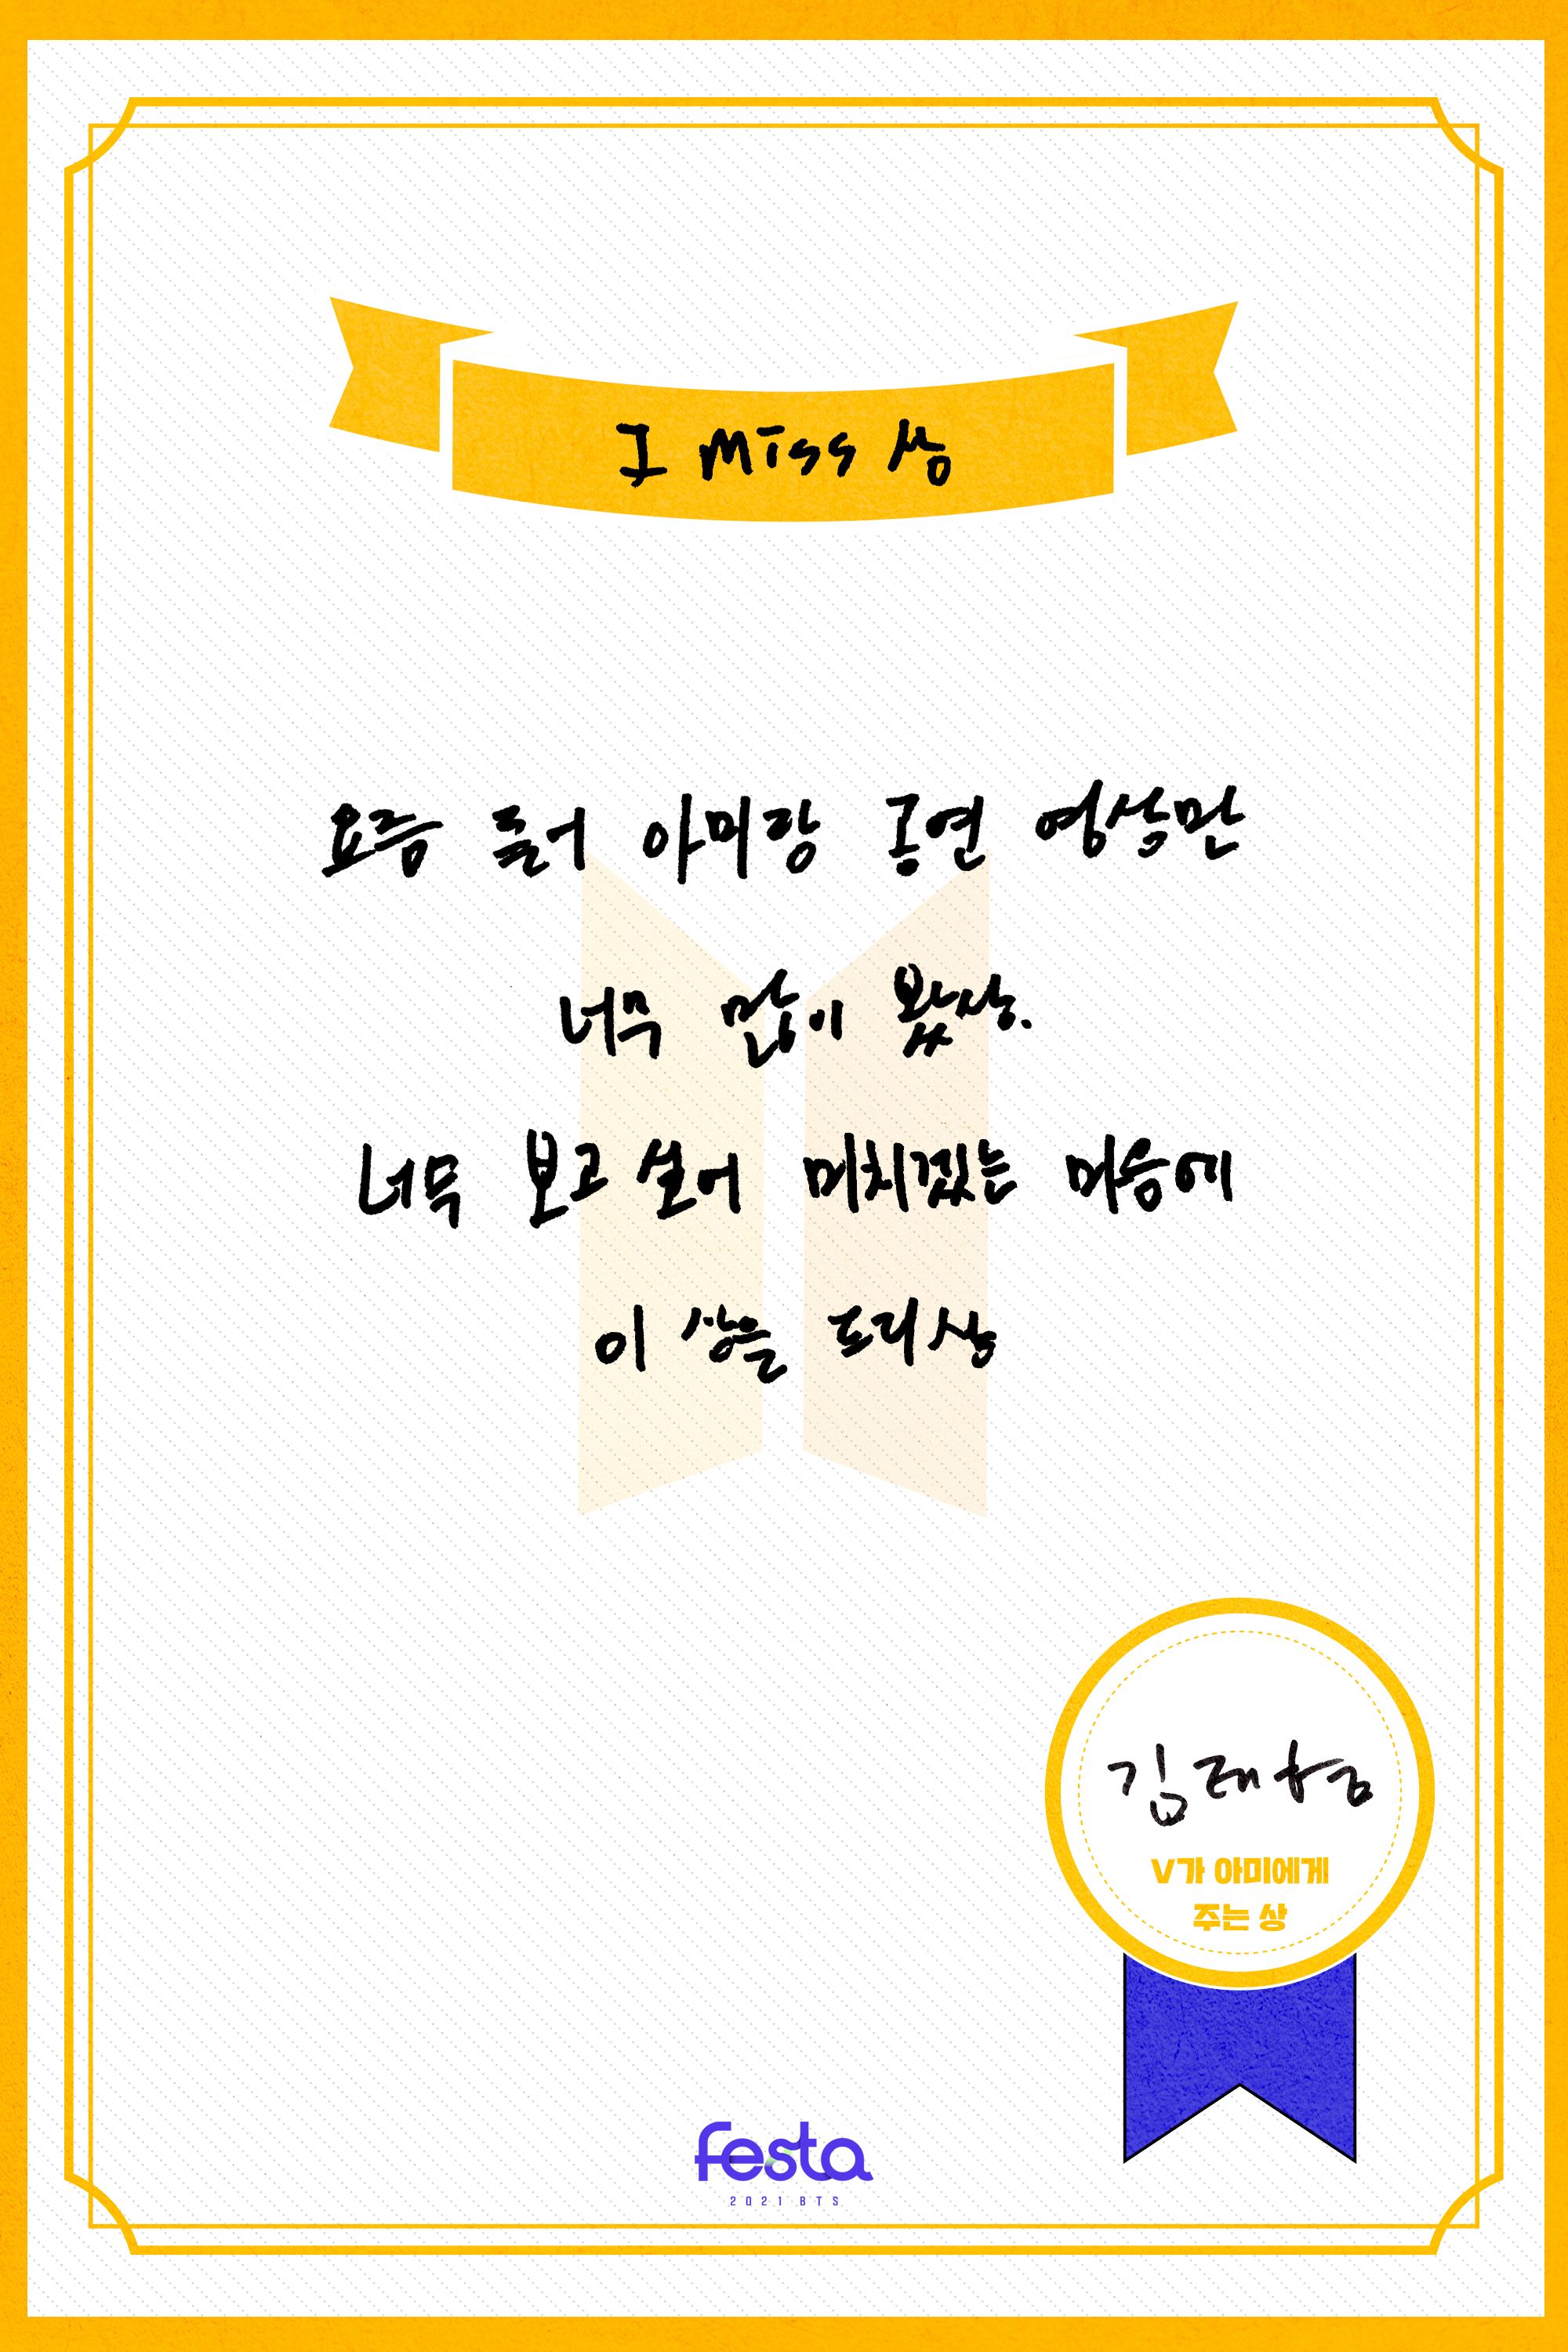 I miss 상
요즘 들어 아미랑 공연 영상만
너무 많이 봤상.
너무 보고 싶어 미치겠는 마음에
이 상을 드리상
김태형
V가 아미에게
주는 상
festa
2021 BTS